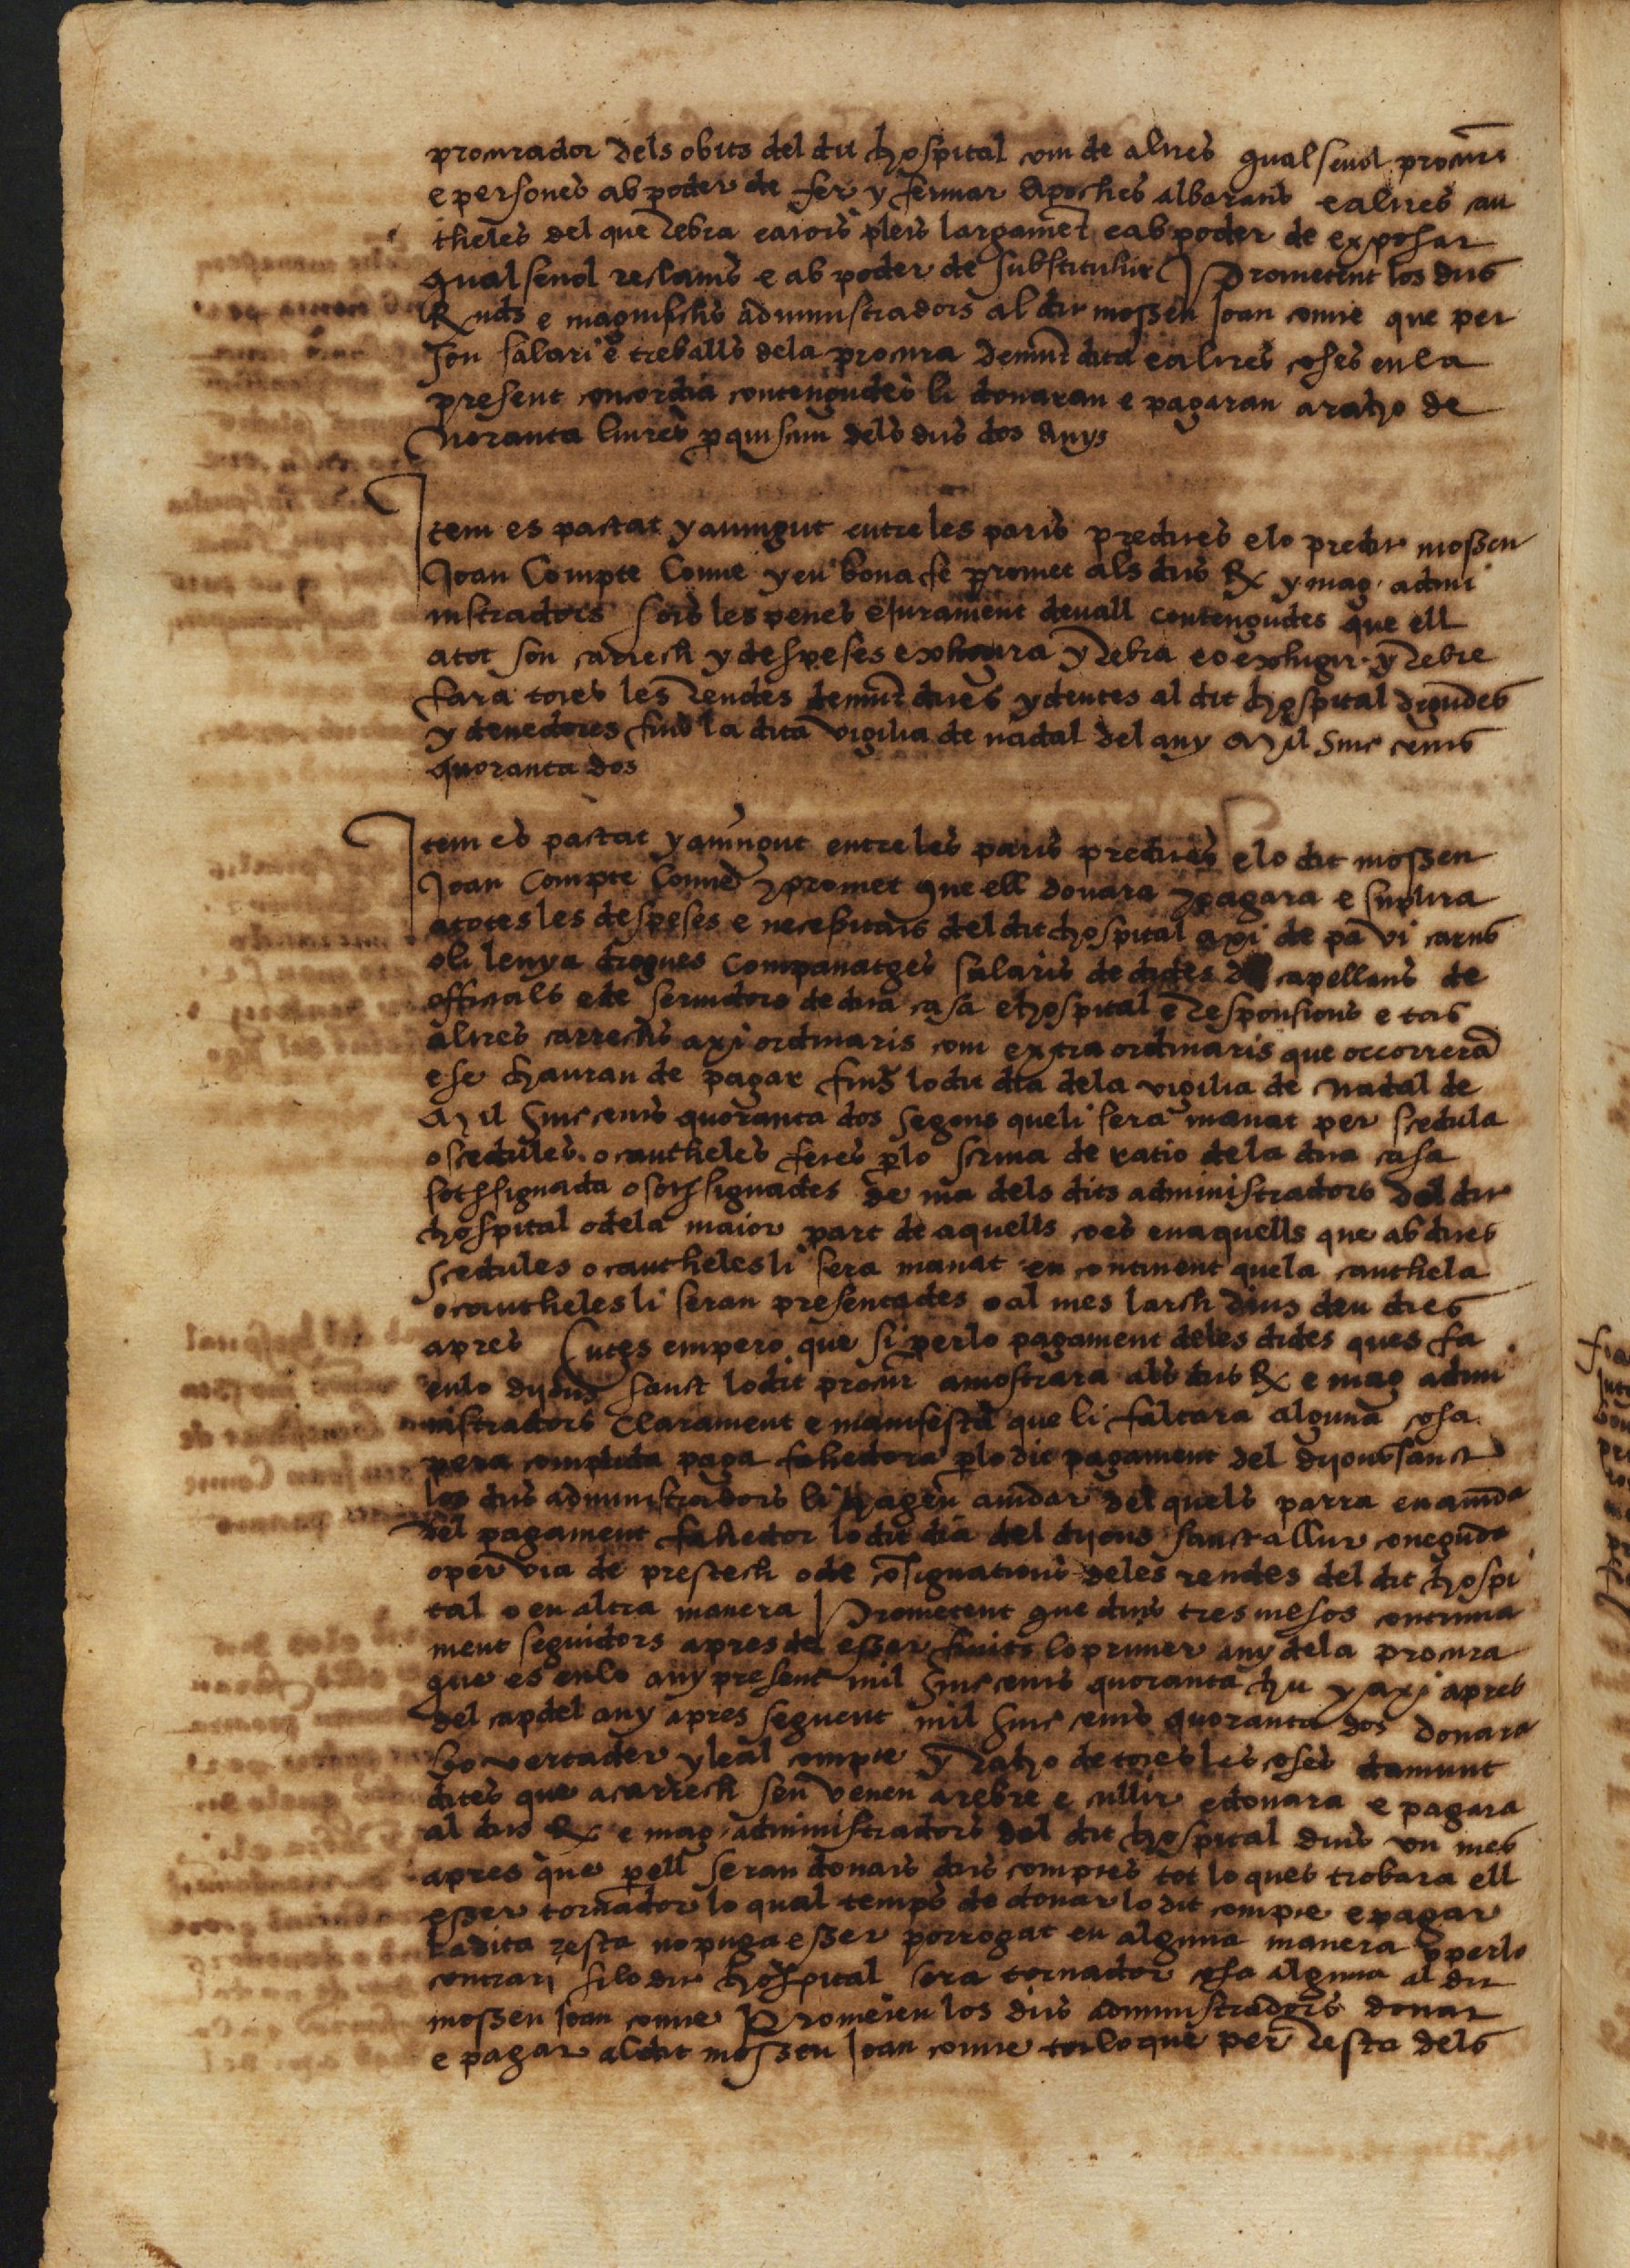 procurador dels obits del dit hospital com de altres qualsevol procurs
e persones ab poder de fer y fermar Apoches albarans e altres cau
theles del que rebra e actors pleits largament e ab poder de exposar
qualsevol reclams e ab poder de substituhir Prometent los dits
Rnds e magnifichs administradors al dit mossen Joan comte que per
son salari e treballs dela procura demunt dita e altres coses en la
present concordia contengudes li donaran e pagaran a raho de
Noranta liures per quiscun dels dits dos Anys
Item es pactat y avingut entre les parts predites e lo predit mossen
Joan Compte Conve y en bona fe promet als dits Rx y mag. admi
nistradors sots les penes e jurament devall contengudes que ell
a tot son carrech y despeses exhigira y rebra eo exhigir y rebre
fara totes les rendes demunt dites y deutes al dit hospital degudes
y devedores fins la dita vigilia de nadal del any Mil Sinc cents
quoranta dos
Item es pactat y avingut entre les parts predites e lo dit mossen
Joan Compte Conve y promet que ell donara y pagara e suplira
a totes les despeses e necesitats del dit hospital axi de pa vi carns
oli lenya drogues companatges salaris de dides de capellans de
officials e de servidors de dita casa e hospital e responsions e tots
altres carrechs axi ordinaris com extra ordinaris que occorreran
e se hauran de pagar fins lo dit dia dela vigilia de Nadal de
Mil Sinc cents quoranta dos segons que li sera manat per scedula
o scedules o cautheles fetes per lo scriva de ratio dela dita casa
sotssignada o sotssignades de ma dels dits administradors del dit
hospital o dela maior part de aquells ço es en aquells que ab dites
scedules o cautheles li sera manat en continent que la cauthela
o cautheles li seran presentades o al mes larch dins deu dies
apres Entes empero que si per lo pagament deles dides ques fa
en lo dijous sanct lo dit procur amostrara als dits Rx e mag admi
nistradors clarament e manifesta que li faltara alguna cosa
pera complida paga fahedora per lo dit pagament del dijous sanct
los dits administradors li hagen aiudar del quels parra en aiuda
del pagament fahedor lo dit dia del dijous sanct a llur coneguda
o per via de prestech o de consignations deles rendes del dit hospi
tal o en altra manera Prometent que dins tres mesos continua
ment seguidors apres de esser finits lo primer any dela procura
que es en lo any present mil Sinc cents quoranta hu y axi apres
del cap del any apres seguent mil Sinc cents quoranta dos donara
bo vertader y leal compte y raho de totes les coses damunt
dites que a carrech seu venen a rebre e cullir e donara e pagara
al dits Rx e mag. administradors del dit hospital dins un mes
apres que per ell seran donats dits comptes tot lo ques trobara ell
esser tornador lo qual temps de donar lo dit compte e pagar
la dita resta no puga esser porrogat en alguna manera E per lo
contrari si lo dit hospital sera tornador cosa alguna al dit
mossen Joan conve Prometen los dits administradors donar
e pagar al dit mossen Joan conve tot lo que per resta dels